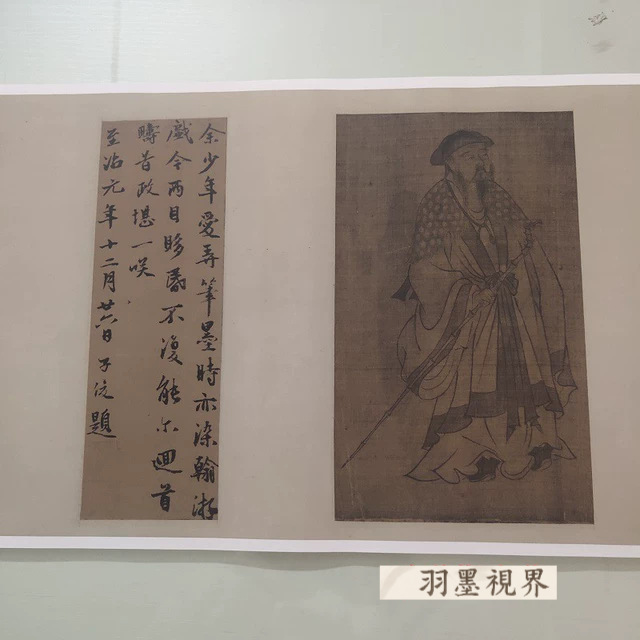 余少年愛弄筆墨時亦染翰游
戲今兩目眵昏不復能尓迴首
疇昔政堪一咲
至治元年十二月廿六日子俊題
羽墨視界